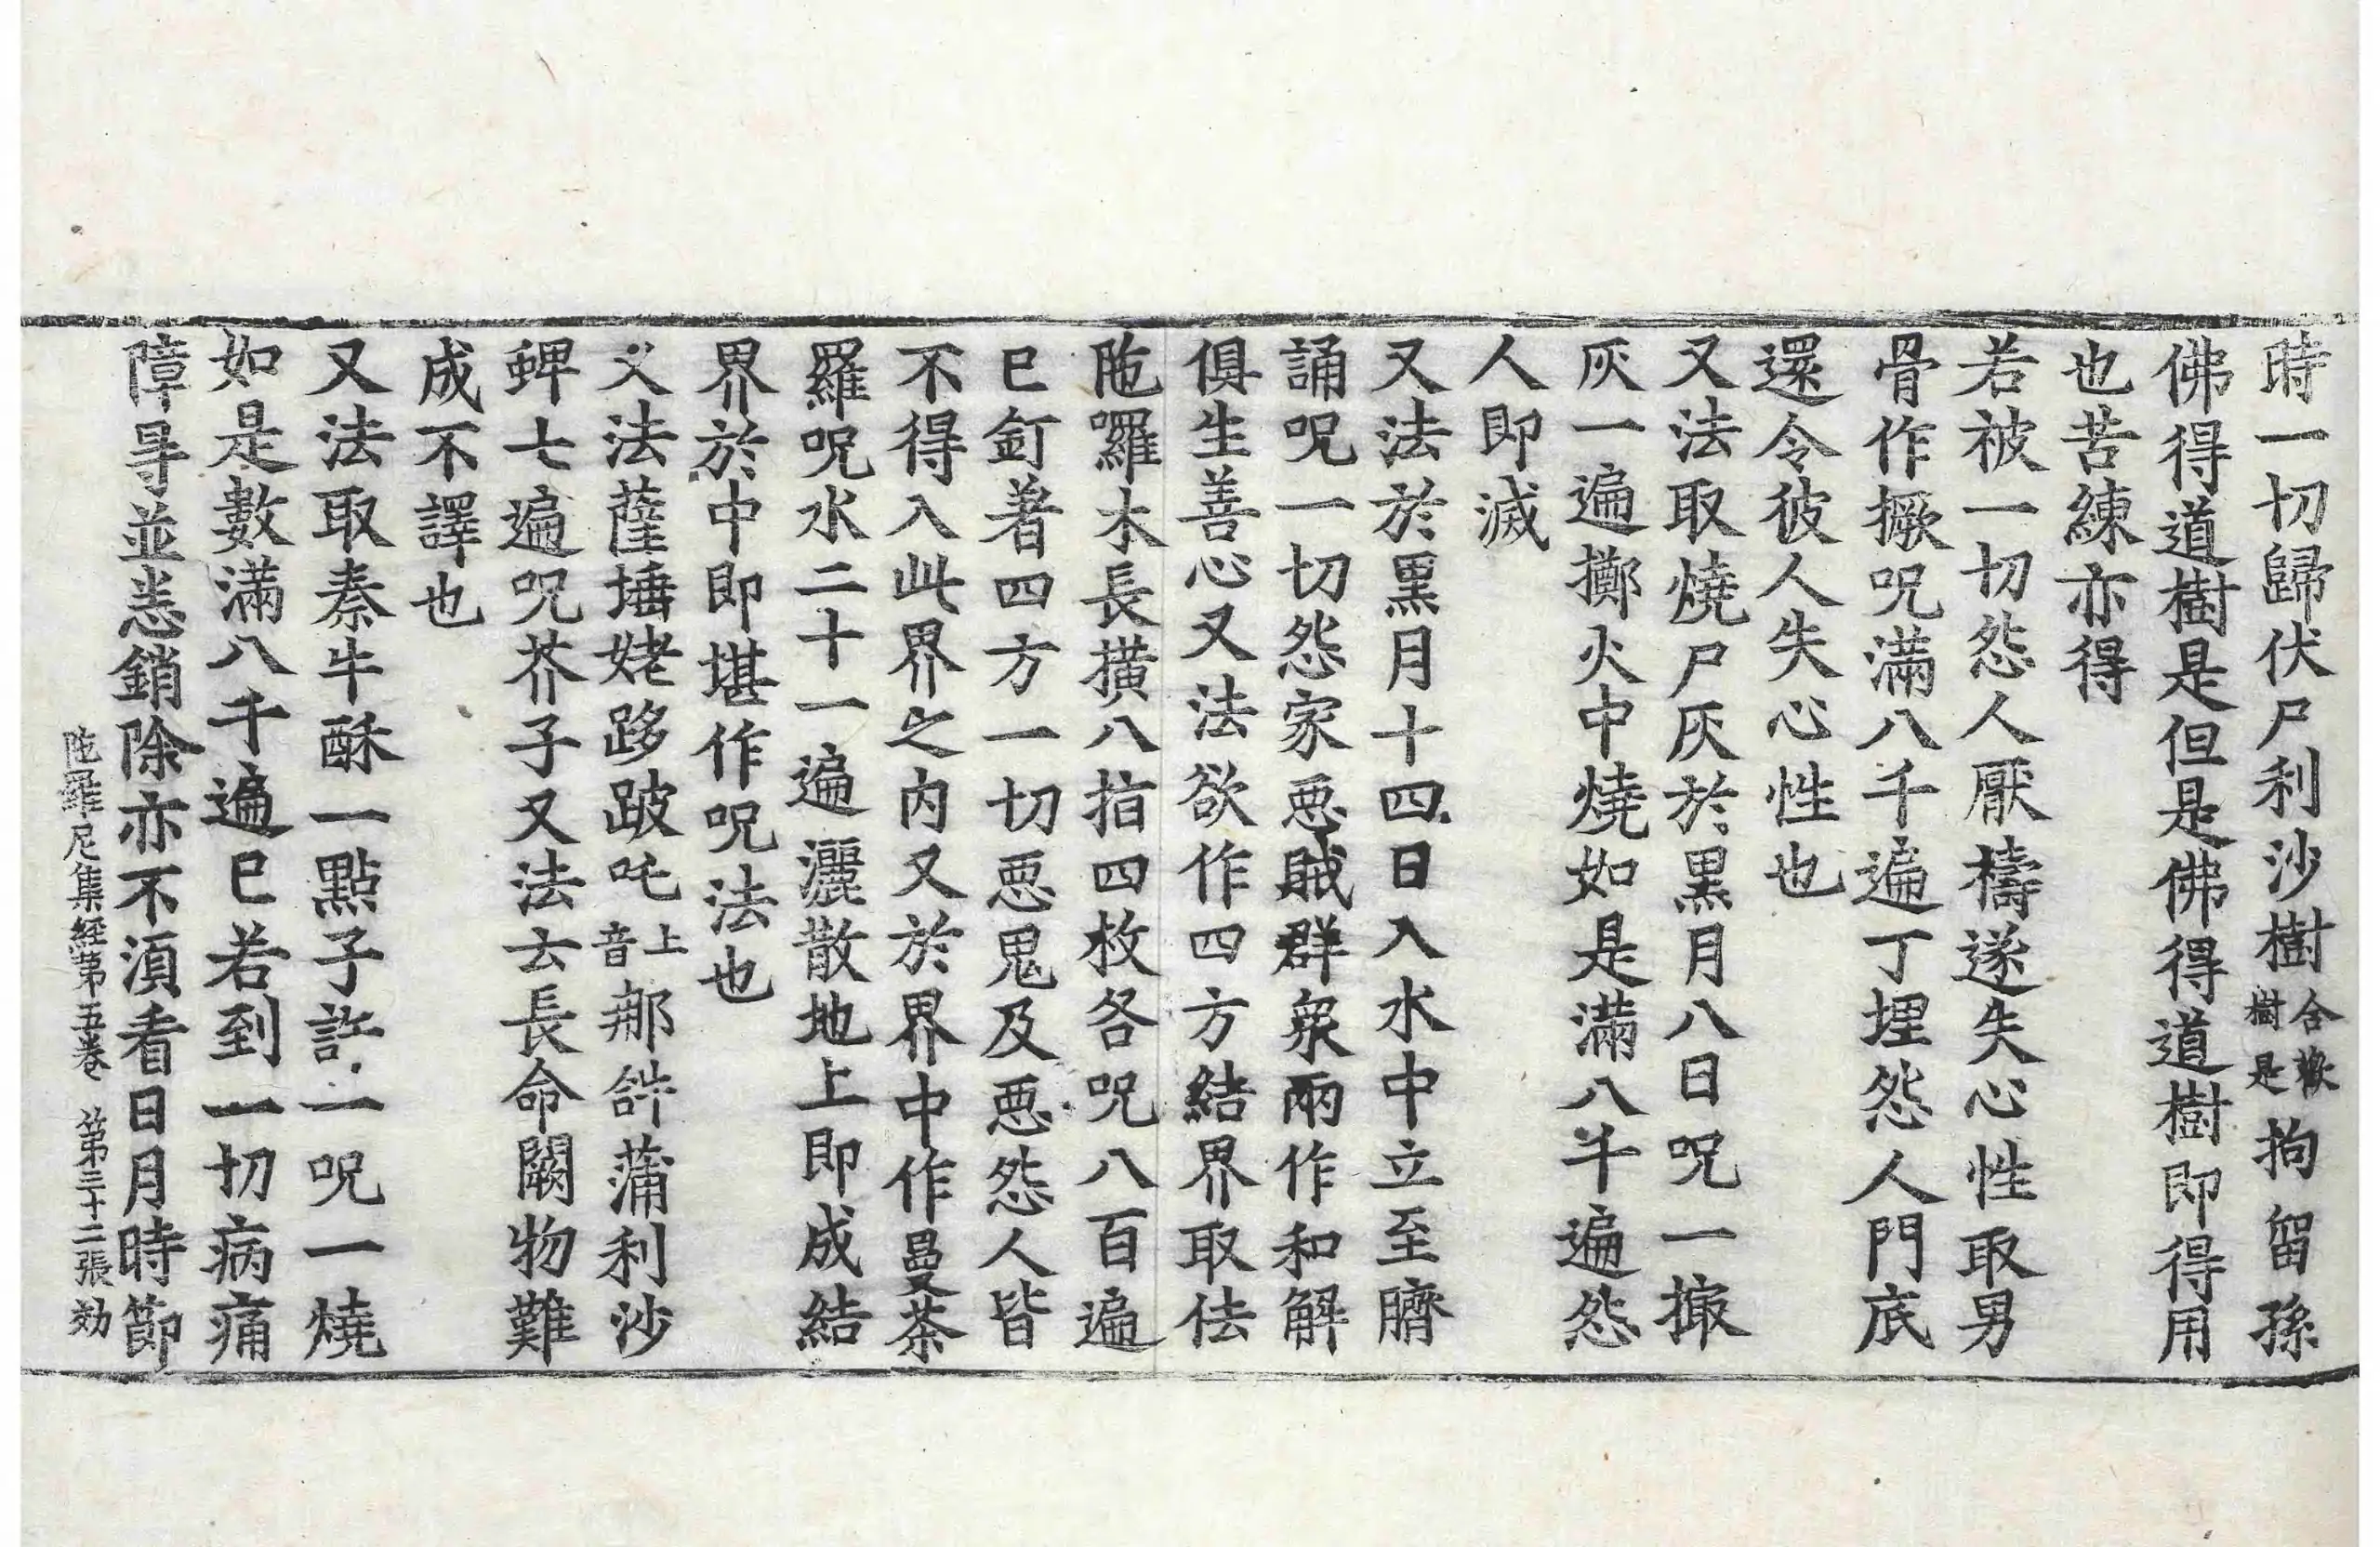 時一切歸伏尸利沙樹合歡樹是拘留孫
佛得道樹是但是佛得道樹即得用
也苦練亦得
若被一切怨人厭禱遂失心性取男
骨作橛呪滿八千遍丁埋怨人門底
還令彼人失心性也
又法取燒尸灰於黑月八日呪一撮
灰一遍擲火中燒如是滿八千遍怨
人即滅
又法於黑月十四日入水中立至臍
誦呪一切怨家惡賊群衆兩作和解
俱生善心又法欲作四方結界取佉
陁囉木長橫八指四枚各呪八百遍
已釘著四方一切惡鬼及惡怨人皆
不得入此界之內又於界中作曼茶
羅呪水二十一遍灑散地上即成結
界於中即堪作呪法也
又法薩埵姥跢跛吒上音那䛠蒲利沙
蜱七遍呪芥子又法去長命闕物難
成不譯也
又法取秦牛酥一點子許一呪一燒
如是數滿八千遍已若到一切病痛
障㝵並悉銷除亦不湏看日月時節
陁羅尼集經第五卷 第三十二張 効